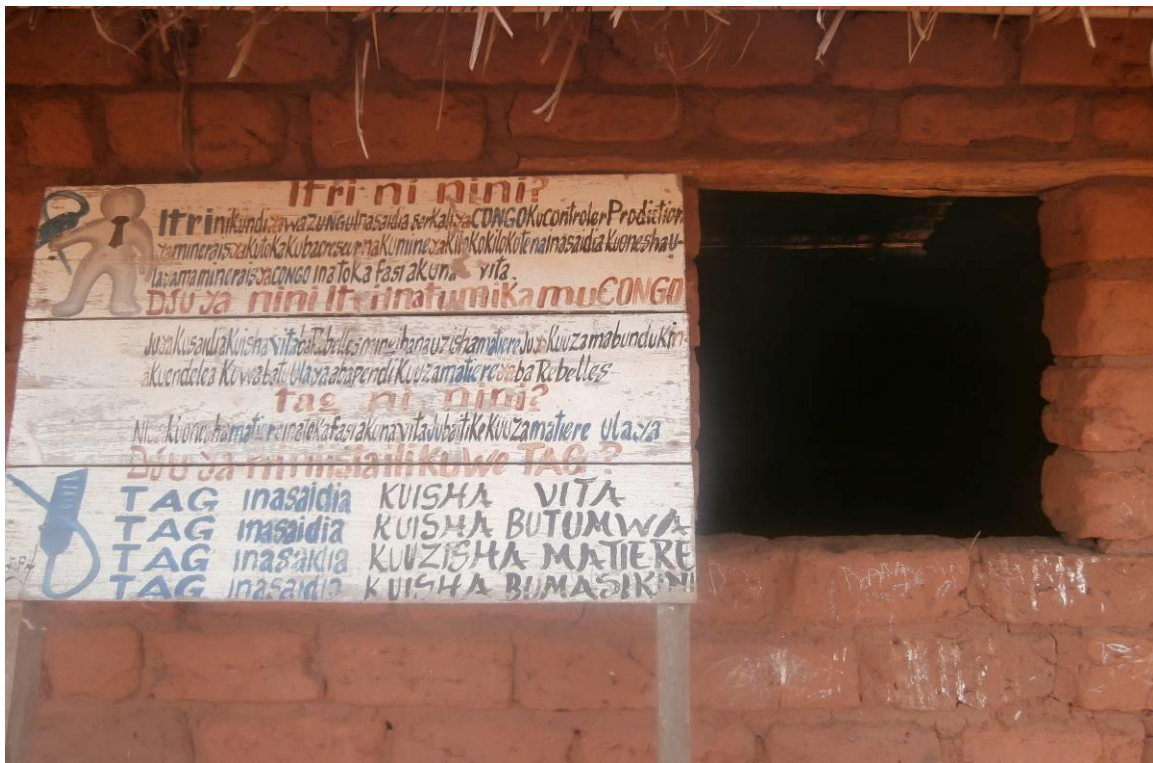 Itri ni nini?
Itri ni kundi ya wazungu inasaidia serkali ya CONGO Kucontroler Prodiction
ya minerais ya kutoka ku ba na Ku mine ya Kilo Kilo Kutena inasaidia Kuonesha u-
laya ma minerais ya CONGO ina toka fasi akuna vita.
DJU ya nini Itri inatumika mu CONGO
Ju ya Kusaidia Kuisha vita ba Rebelles banauzisha matiere Ju ya Kuuza mabunduki n-
akuendelea Kuwa batu Ulaya abapendi Kuuza matiere ya ba Rebelles
Tag ni nini?
Kuonesha matiere inatoka fasi akuna vita Ju batike Kuuza matiere ulaya
DJU ya nini ilikuwe TAG?
TAG inasaidia KUISHA VITA
TAG inasaidia KUISHA BUTUMWA
TAG inasaidia KUUZISHA MATIERE
TAG inasaidia KUISHA BUMASIKINI